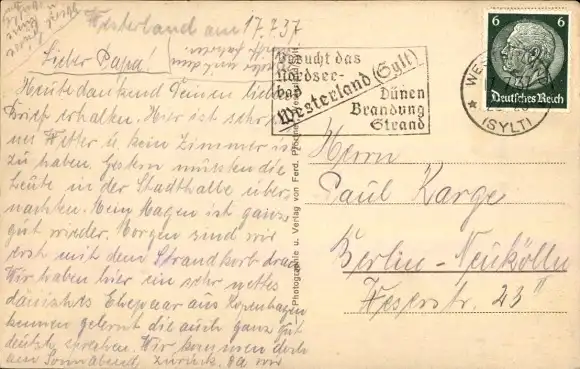 Westerland am 17.7.37
Lieber Papa!
Heute dankend Deinen lieben
Brief erhalten. Hier ist sehr
Wetter u. kein Zimmer
zu haben. Gestern mussten die
Leute in der Stadthalle über-
nachten. Mein Magen ist ganz
gut wieder. Morgen sind wir
erst mit dem Strandkorb dran
Wir haben hier ein sehr nettes
dänisches Ehepaar aus Kopenhagen
kennen gelernt die auch ganz gut
deutsch sprechen. Wir kommen doch
am Sonnabend zurück. Da wir
Besucht das
Nordsee-
bad
Westerland (Sylt)
Dünen
Brandung
Strand
6 6
Deutsches Reich
(SYLT)
Herrn
Paul Karge
Berlin-Neukölln
Weserstr. 23 II
u. Verlag von Ferd.